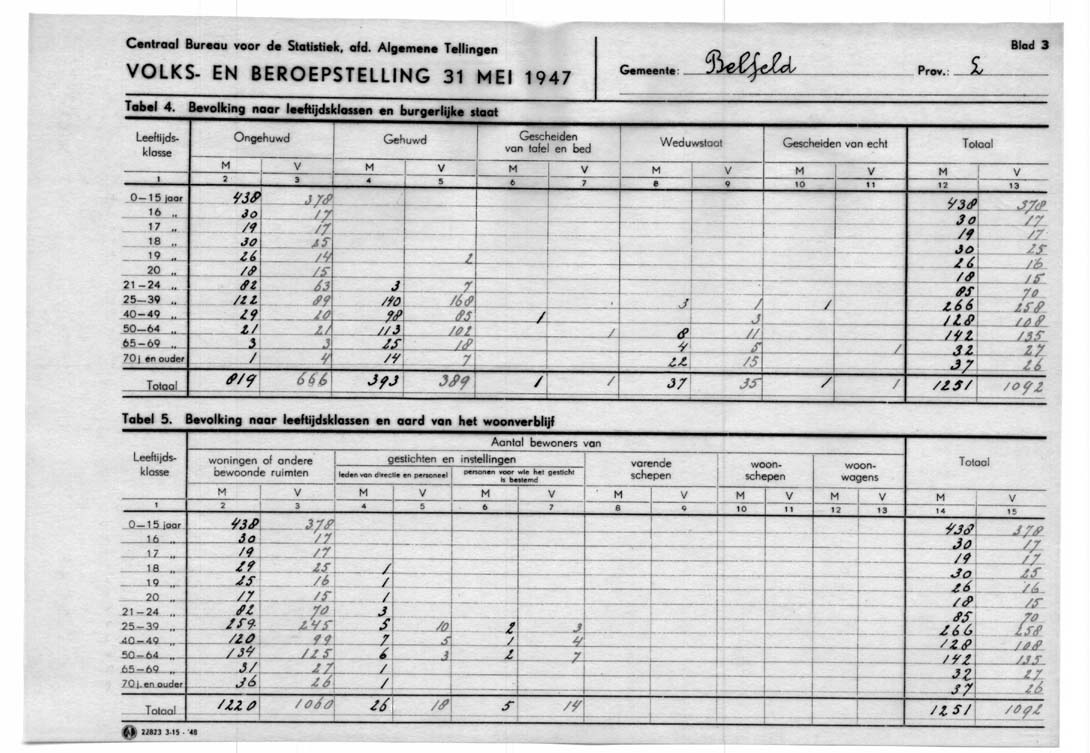 Centraal Bureau voor de Statistiek, afd. Algemene Tellingen
VOLKS- EN BEROEPSTELLING 31 MEI 1947
Gemeente: Belfeld Prov.: L
Blad 3
Tabel 4. Bevolking naar leeftijdsklassen en burgerlijke staat
Leeftijds-klasse Ongehuwd Gehuwd Gescheiden van tafel en bed Weduwstaat Gescheiden van echt Totaal
M V M V M V M V M V M V
1 2 3 4 5 6 7 8 9 10 11 12 13
0—15 jaar 438 378 438 378
16 „ 30 17 30 17
17 „ 19 17 19 17
18 „ 30 25 30 25
19 „ 26 14 2 26 16
20 „ 18 15 18 15
21—24 „ 82 63 3 7 85 70
25—39 „ 122 89 140 168 3 1 1 266 258
40—49 „ 29 20 98 85 1 3 128 108
50—64 „ 21 21 113 102 1 8 11 142 135
65—69 „ 3 3 25 18 4 5 1 32 27
70 j en ouder 1 4 14 7 22 15 37 26
Totaal 819 666 393 389 1 1 37 35 1 1 1251 1092
Tabel 5. Bevolking naar leeftijdsklassen en aard van het woonverblijf
Aantal bewoners van
Leeftijds-klasse woningen of andere bewoonde ruimten gestichten en instellingen varende schepen woon-schepen woon-wagens Totaal
leden van directie en personeel personen voor wie het gesticht is bestemd
M V M V M V M V M V M V M V
1 2 3 4 5 6 7 8 9 10 11 12 13 14 15
0—15 jaar 438 378 438 378
16 „ 30 17 30 17
17 „ 19 17 19 17
18 „ 29 25 1 30 25
19 „ 25 16 1 26 16
20 „ 17 15 1 18 15
21—24 „ 82 70 3 85 70
25—39 „ 259 245 5 10 2 3 266 258
40—49 „ 120 99 7 5 1 4 128 108
50—64 „ 134 125 6 3 2 7 142 135
65—69 „ 31 27 1 32 27
70 j. en ouder 36 26 1 37 26
Totaal 1220 1060 26 18 5 14 1251 1092
22823 3-15 - '48